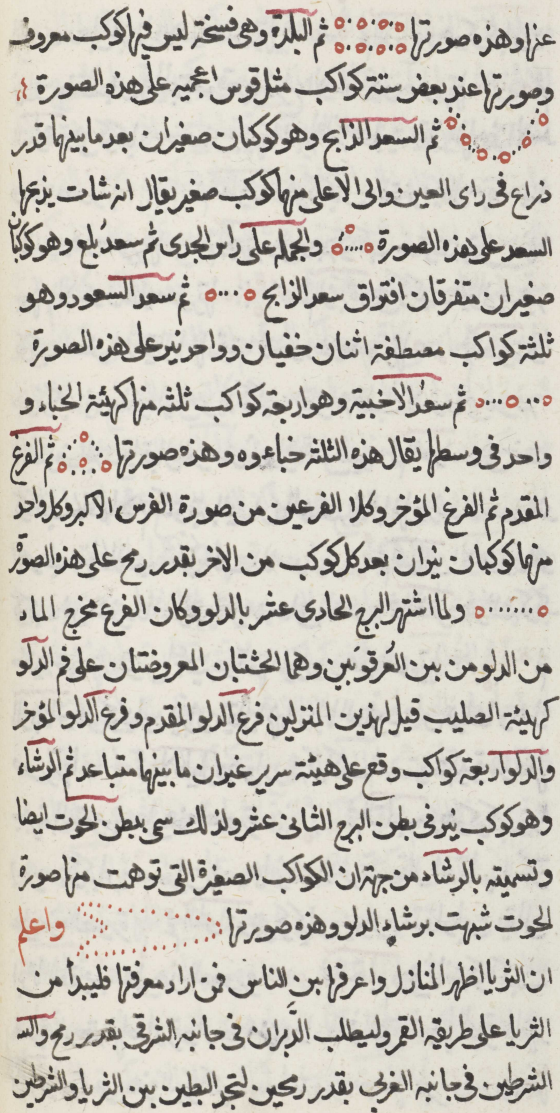 عنها وهذه صورتها ثم البلدة وهى فسخة ليس فيها كوكب معروف
وصورتها عند بعض ستة كواكب مثل قوس اعجميه على هذه الصورة
ثم السعد الذابح وهو كوكبان صغيران بعد ما بينهما قدر
ذراع فى راى العين والى الاعلى منهما كوكب صغير يقال انه شات يذبحها
السعد على هذه الصورة والجمله على راس الجدى ثم سعد بلع وهو كوكبان
صغيران متفرقان افتراق سعد الذابح ثم سعد السعود وهو
ثلثة كواكب مصطفة اثنان خفيان وواحد نير على هذه الصورة
ثم سعد الاخبية وهو اربعة كواكب ثلثه منها كهيئة الخباء و
واحد فى وسطها يقال هذه الثلثة خباءوه وهذه صورتها ثم الفرغ
المقدم ثم الفرغ المؤخر وكلا الفرعين من صورة الفرس الاكبر وكل واحد
منهما كوكبان نيران بعد كل كوكب من الاخر بقدر رمح على هذه الصورة
ولما اشتهر البرج الحادى عشر بالدلو وكان الفرع مخرج الماء
من الدلو من بين العرقوبين وهما الخشبتان المعروضتان على فم الدلو
كهيئة الصليب قيل لهذين المنزلين فرغ الدلو المقدم وفرغ الدلو المؤخر
والدلو اربعة كواكب وقع على هيئة سرير غير ان ما بينهما متباعد ثم الرشاء
وهو كوكب نير فى بطن البرج الثانى عشر ولذلك سمى ببطن الحوت ايضا
وتسميته بالرشاء من جهة ان الكواكب الصغيرة التى توهمت منها صورة
الحوت شبهت برشاء الدلو وهذه صورتها واعلم
ان الثريا اظهر المنازل واعرفها بين الناس فمن اراد معرفتها فليبدأ من
الثريا على طريقه القمر وليطلب الدبران فى جانبه الشرقى بقدر رمح
الشرطين فى جانبه الغربى بقدر رمحين لتجد البطين بين الثريا والشرطين